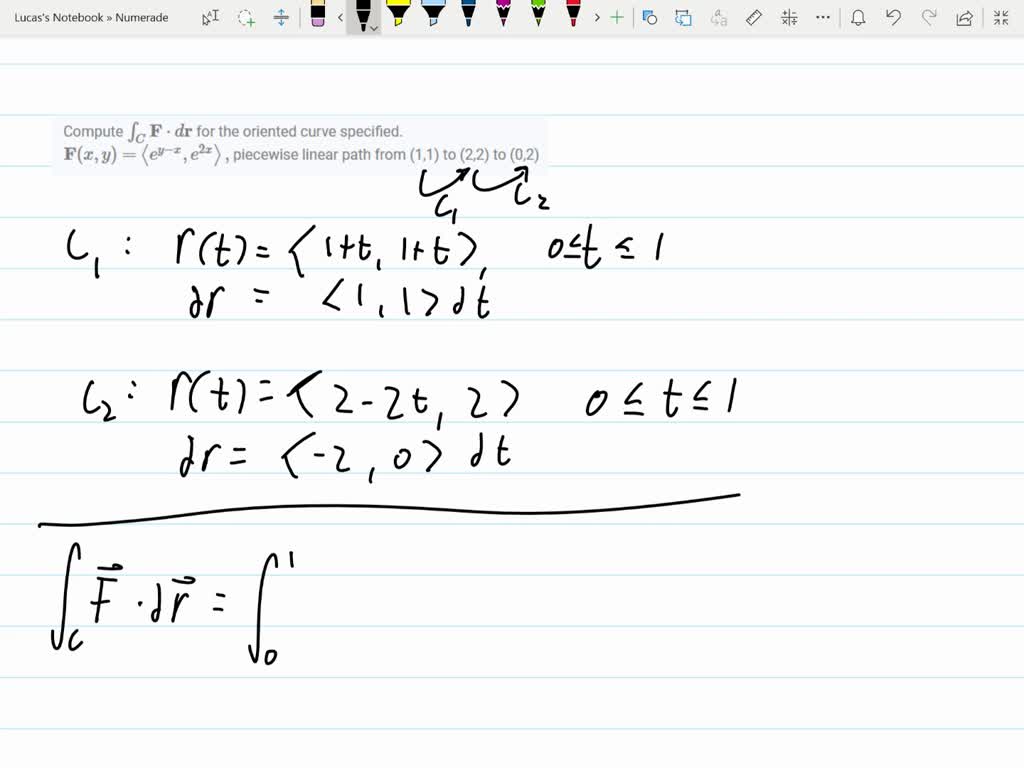 Lucas's Notebook » Numerade
Compute ∫_C F · dr for the oriented curve specified.
F(x, y) = ⟨e^{y−x}, e^{2x}⟩, piecewise linear path from (1,1) to (2,2) to (0,2)
C₁ C₂
C₁ : r(t) = ⟨1+t, 1+t⟩, 0 ≤ t ≤ 1
dr = ⟨1, 1⟩ dt
C₂ : r(t) = ⟨2-2t, 2⟩ 0 ≤ t ≤ 1
dr = ⟨-2, 0⟩ dt
∫_C F⃗ · dr⃗ = ∫₀¹